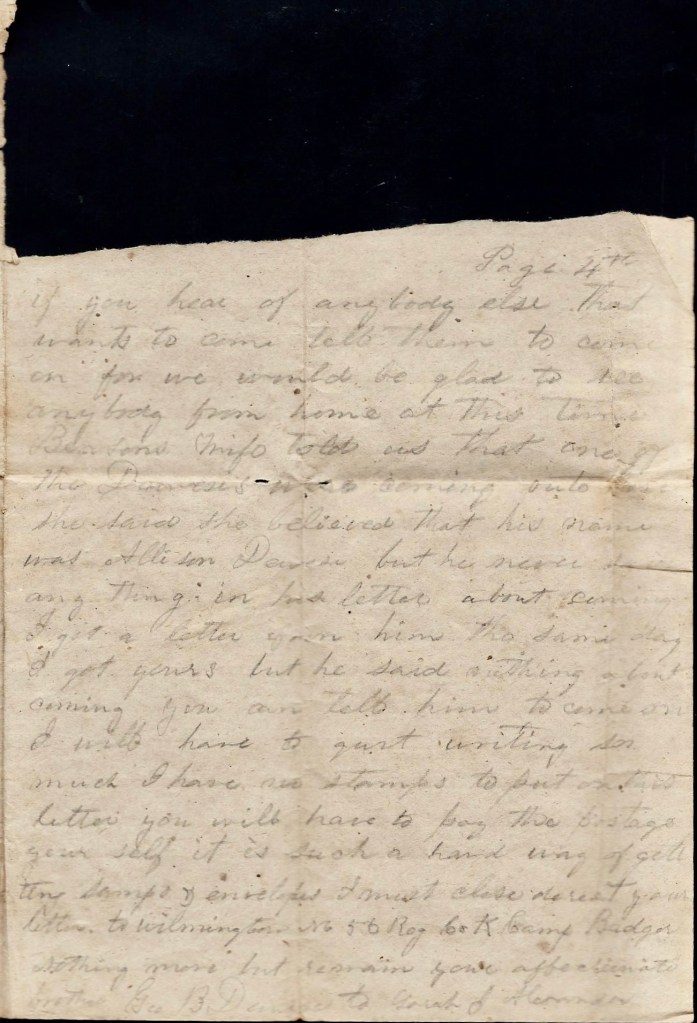 Page 4th
if you hear of anybody else that
wants to come tell them to come
on for we would be glad to see
anybody from home at this time
told us that one of
the Deweses coming out
she said she believed that his name
was Allison Dewese but he never
any thing in his letter about coming
I got a letter from him the same day
I got yours but he said nothing about
coming you can tell him to come on
I will have to quit writing so
much I have no stamps to put on this
letter you will have to pay the postage
your self it is such a hard way of get
ting stamps & envelopes I must close direct your
letter to Wilmington 50 Reg Co K Camp Badger
nothing more but remain your affectionate
brother Geo B to Sarah J